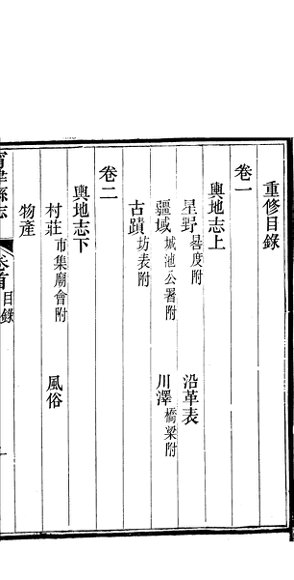 重修目錄
卷一
輿地志上
星野晷度附 沿革表
疆域城池公署附 川澤橋梁附
古蹟坊表附
卷二
輿地志下
村莊市集廟會附 風俗
物產
甯津縣志 卷首 目錄 一